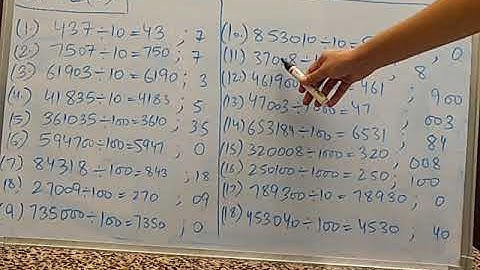 (1) 437÷10=43 ; 7
(2) 7507÷10=750 ; 7
(3) 61903÷10=6190 ; 3
(4) 41835÷10=4183 ; 5
(5) 361035÷100=3610 ; 35
(6) 594700÷100=5947 ; 0
(7) 84318÷100=843 ; 18
(8) 27009÷100=270 ; 09
(9) 735000÷100=7350 ; 0
(10) 853010÷10= ; 0
(11) ; 8
(12) 461 ; 900
(13) 47003÷1000=47 ; 003
(14) 653184÷100=6531 ; 84
(15) 320008÷1000=320 ; 008
(16) 250100÷1000=250 ; 100
(17) 789300÷10=78930 ; 0
(18) 453040÷100=4530 ; 40